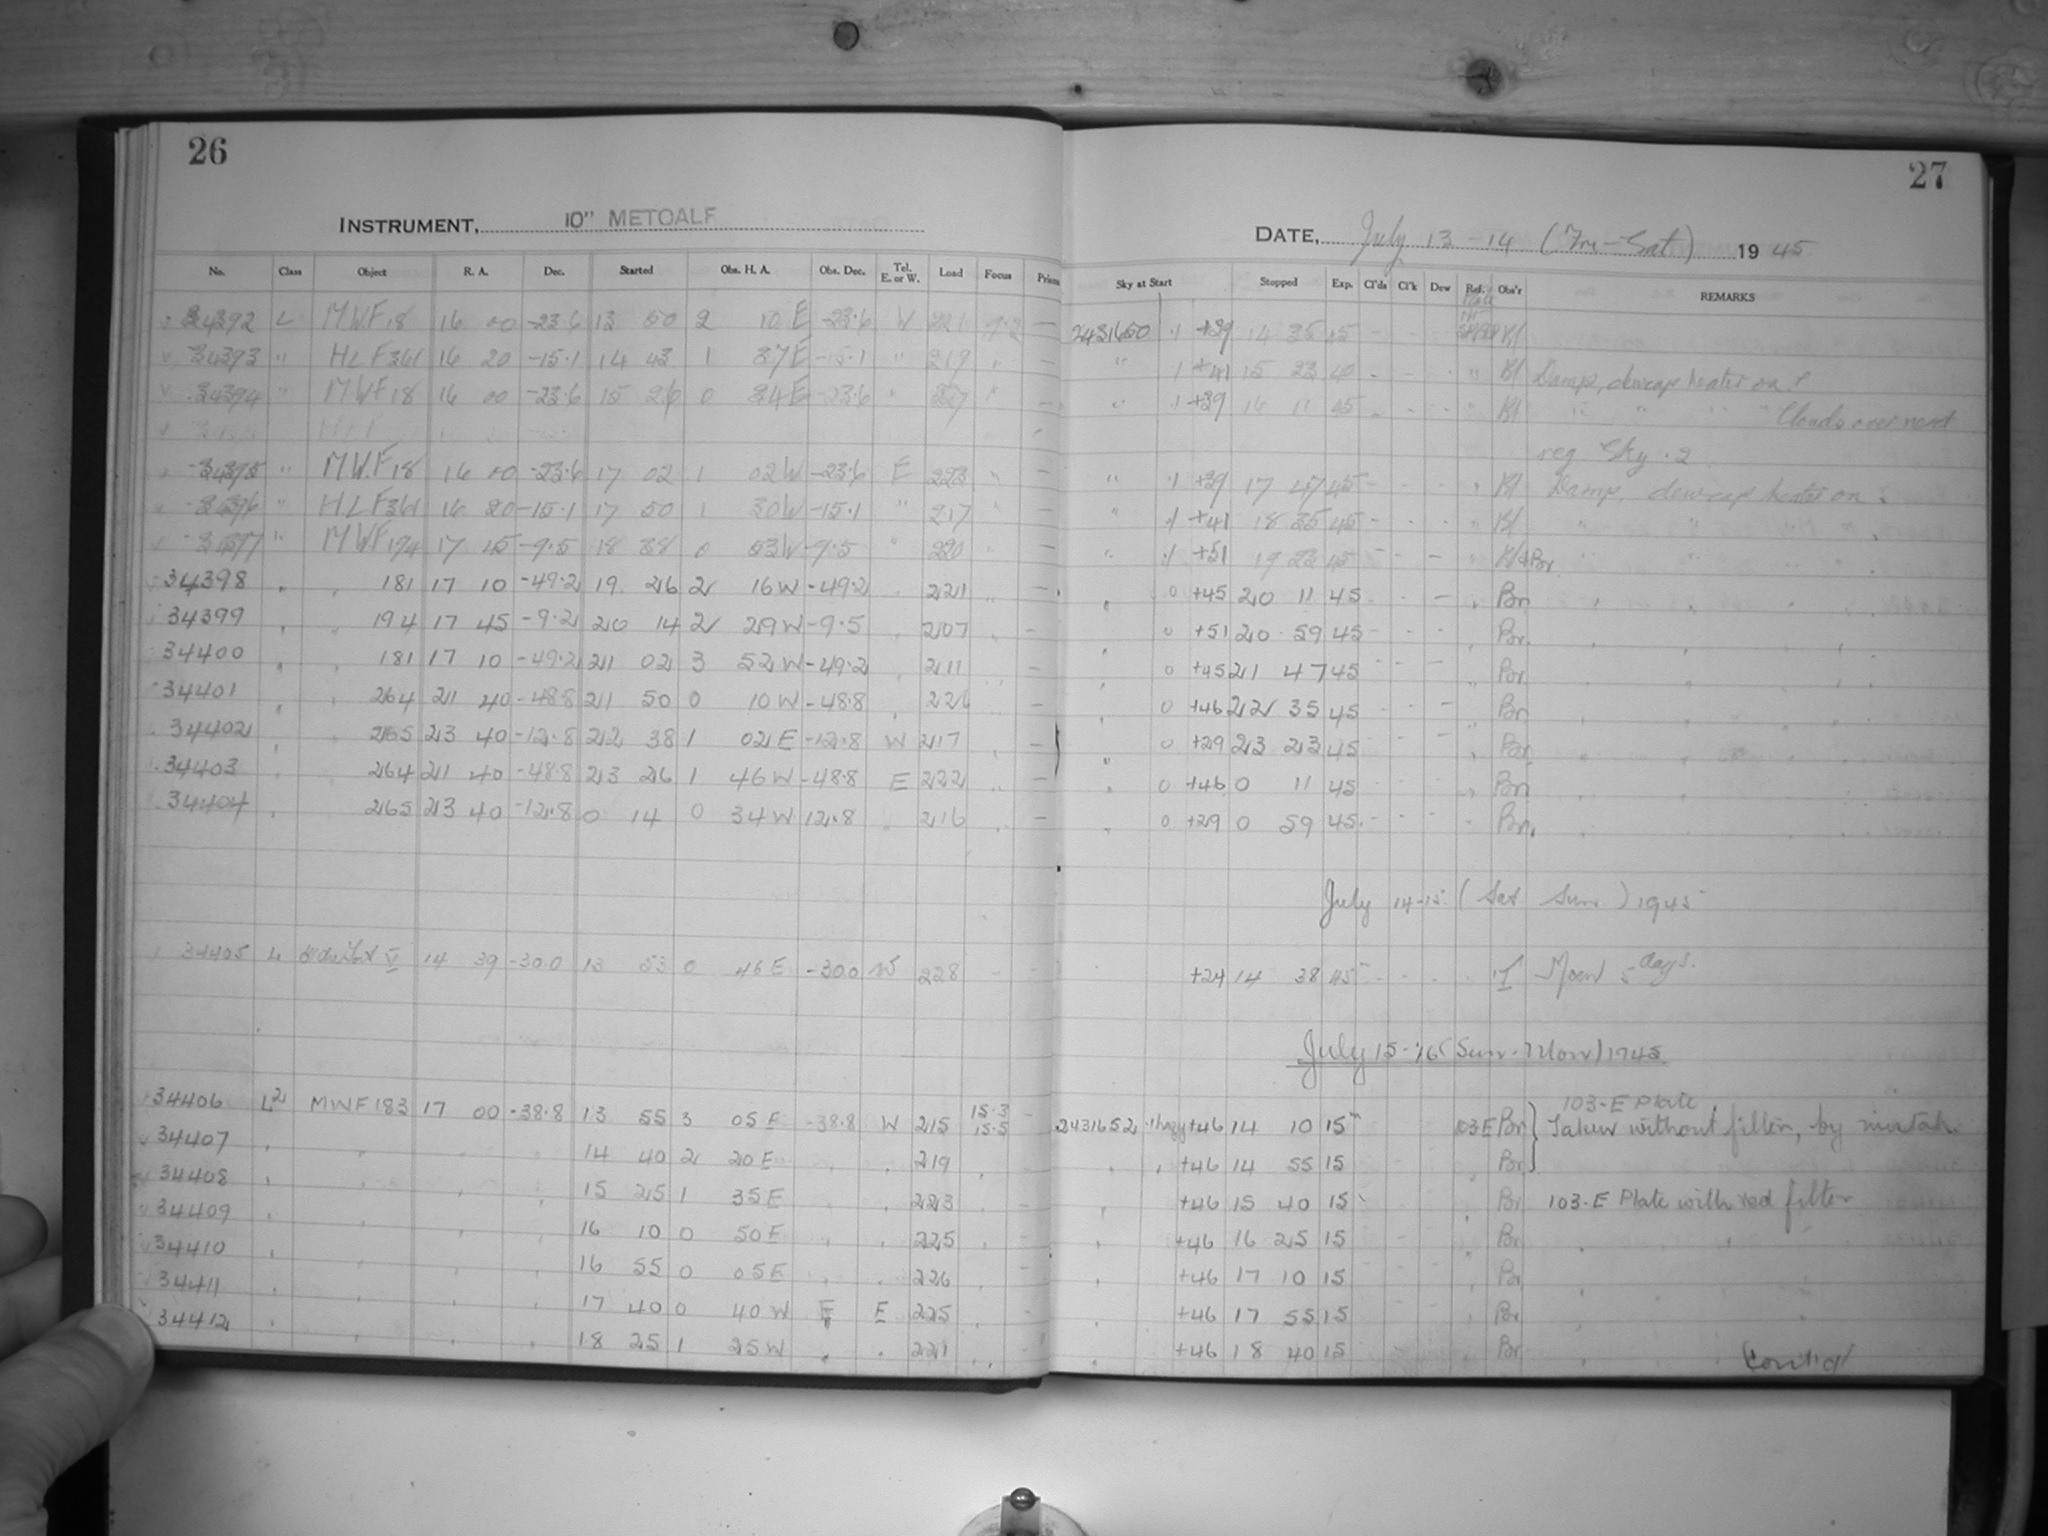 26
INSTRUMENT, 10" METCALF
No. Class Object R. A. Dec. Started Obs. H. A. Obs. Dec. Tel. E. or W. Load Focus Prism
34392 L MWF 18 16 00 -23.6 13 50 2 10 E -23.6 W 221 9.2 —
34393 " HLF 361 16 20 -15.1 14 43 1 37 E -15.1 " 219 " —
34394 " MWF 18 16 00 -23.6 15 26 0 34 E -23.6 " 227 " —
34395 " MWF 18 16 00 -23.6 17 02 1 02 W -23.6 E 223 " —
34396 " HLF 361 16 20 -15.1 17 50 1 30 W -15.1 " 217 " —
34397 " MWF 194 17 45 -9.5 18 38 0 53 W -9.5 " 220 —
34398 " " 181 17 10 -49.2 19 26 2 16 W -49.2 " 221 " —
34399 " " 194 17 45 -9.2 20 14 2 29 W -9.5 " 207 " —
34400 " " 181 17 10 -49.2 21 02 3 52 W -49.2 211 —
34401 " " 264 21 40 -48.8 21 50 0 10 W -48.8 " —
34402 " 265 23 40 -12.8 22 38 1 02 E -12.8 W 217 " —
34403 " " 264 21 40 -48.8 23 26 1 46 W -48.8 E 222 " —
34404 " 265 23 40 -12.8 0 14 0 34 W 12.8 " 216 " —
34405 L 14 39 -30.0 13 53 0 46 E -30.0 W 228
34406 L2 MWF 183 17 00 -38.8 13 55 3 05 E -38.8 W 215 15.3 15.5 -
34407 " " " " 14 40 2 20 E " " 219 "
34408 " " " " 15 25 1 35 E 223 " -
34409 " " " " 16 10 0 50 E " " 225 "
34410 " " " " 16 55 0 05 E " " 226 " -
34411 " " " " 17 40 0 40 W E E 225 " -
34412 " " " " 18 25 1 25 W " " 221 "
27
DATE, July 13-14 (Fri-Sat) 1945
Sky at Start Stopped Exp. Cl'ds Cl'k Dew Ref. Obs'r REMARKS
2431650 .1 +39 14 35 45 - - - Bl
" .1 +41 15 23 40 - - - " Bl Damp, dewcap heater on.
" .1 +39 16 11 45 - - - " Bl " " " " Clouds over next
reg Sky .2
" .1 +39 17 47 45 - - - " Bl Damp, dewcap heater on.
" .1 +41 18 35 45 - - - " Bl " " "
" .1 +51 19 23 45 - - — " Bl+Br. " " "
" 0 +45 20 11 45 - - — " Br. " " "
" 0 +51 20 59 45 - - - " Br. " " "
" 0 +45 21 47 45 - - — " Br. " " "
" 0 +46 22 35 45 - - - " Br. " " "
" 0 +29 23 23 45 - - - " Br. " " "
" 0 +46 0 11 45 - - - " Br. " " "
" 0 +29 0 59 45 - - - " Br. " " "
July 14-15 (Sat Sun) 1945
+24 14 38 45 - - - Moon 5 days.
July 15-16 (Sun-Mon) 1945
2431652 .1 hazy +46 14 10 15 103E Br } 103-E Plate Taken without filter, by mistake
" " +46 14 55 15 " Br
" +46 15 40 15 " Br 103-E Plate with red filter
" +46 16 25 15 " Br " " "
" +46 17 10 15 " Br " " "
" +46 17 55 15 " Br " " "
" +46 18 40 15 " Br " "
Cont'd